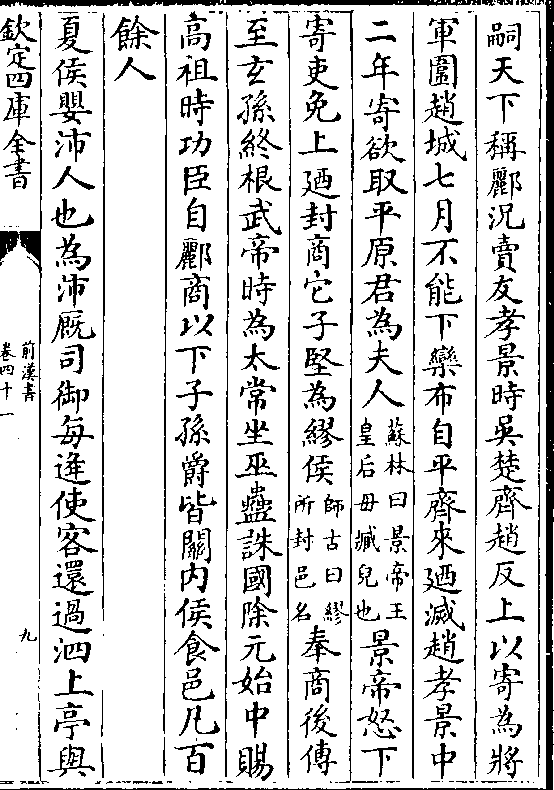 嗣天下稱酈況賣友孝景時吳楚齊趙反上以寄為將
軍圍趙城七月不能下欒布自平齊來廼滅趙孝景中
二年寄欲取平原君為夫人蘇林曰景帝王皇后母臧兒也景帝怒下
寄吏免上廼封商它子堅為繆侯師古曰繆所封邑名奉商後傳
至玄孫終根武帝時為太常坐巫蠱誅國除元始中賜
高祖時功臣自酈商以下子孫爵皆關內侯食邑凡百
餘人
夏侯嬰沛人也為沛厩司御每送使客還過泗上亭與
欽定四庫全書
前漢書
卷四十一
九